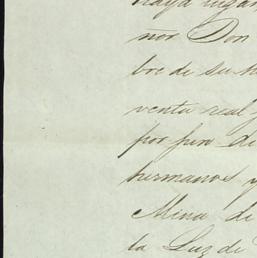 haya lugar
ñor Don
bre de su h
venta real
por juro de
hermanos y
Mina de
la Luz de